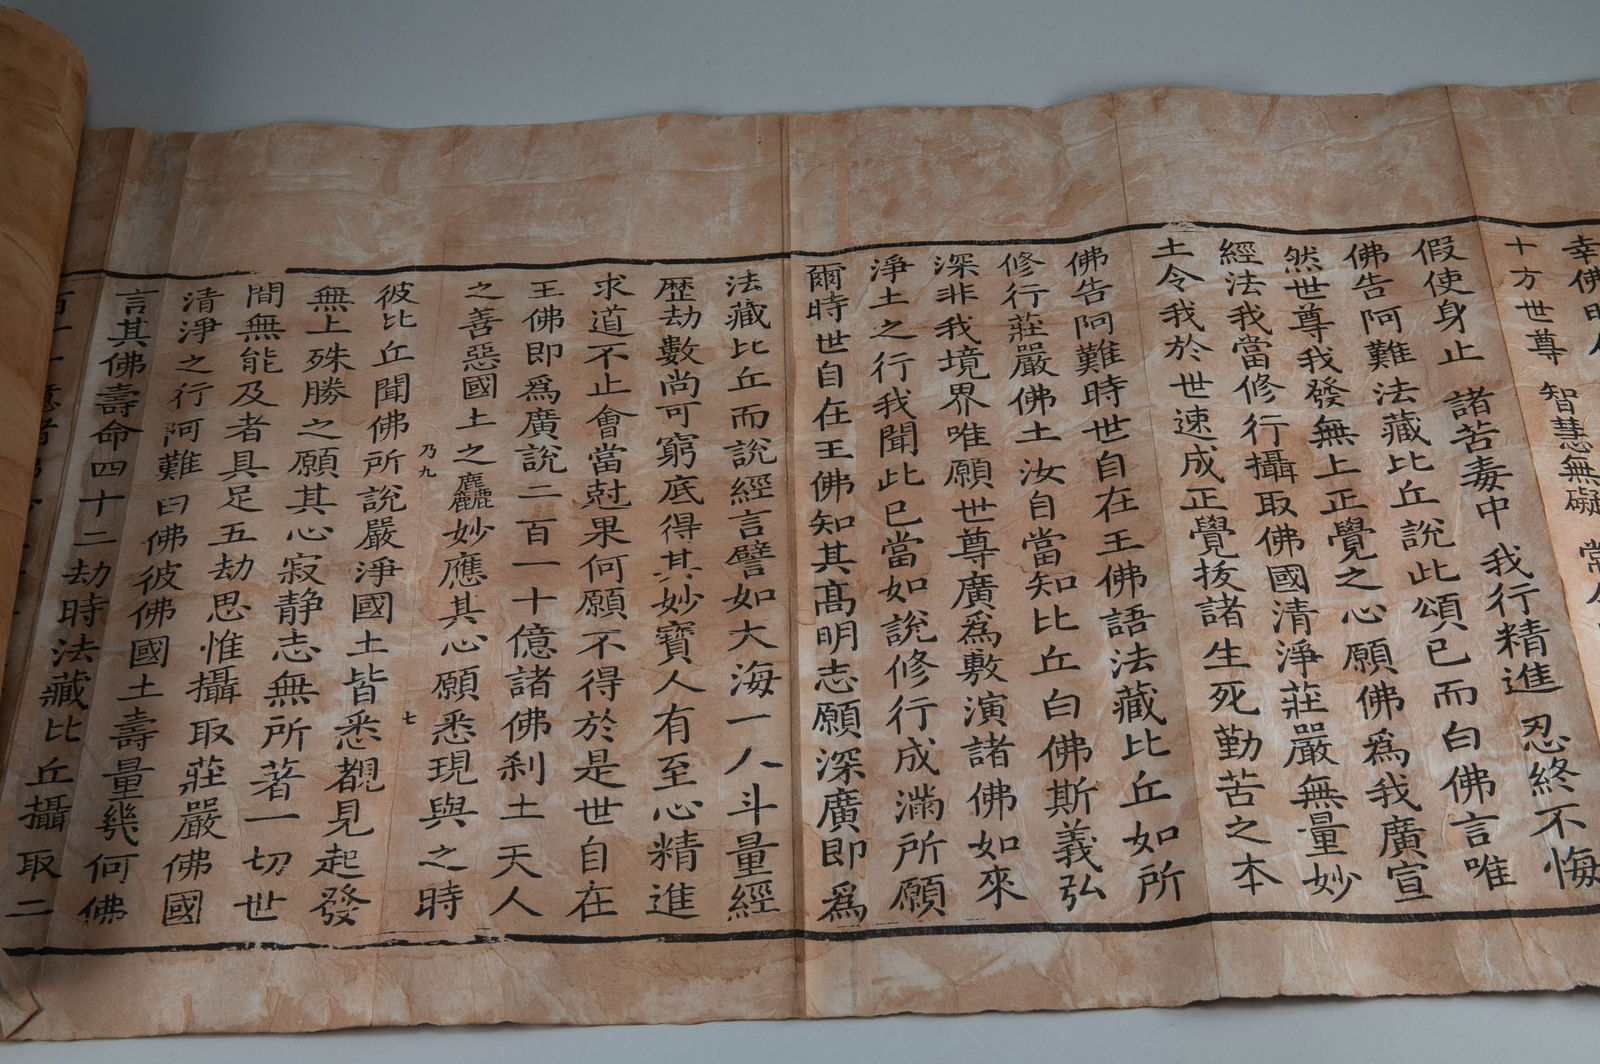 幸佛明
十方世尊 智慧無礙 常
假使身止 諸苦毒中 我行精進 忍終不悔
佛告阿難法藏比丘說此頌已而白佛言唯
然世尊我發無上正覺之心願佛爲我廣宣
經法我當修行攝取佛國清淨莊嚴無量妙
土令我於世速成正覺拔諸生死勤苦之本
佛告阿難時世自在王佛語法藏比丘如所
修行莊嚴佛土汝自當知比丘白佛斯義弘
深非我境界唯願世尊廣爲敷演諸佛如來
淨土之行我聞此已當如說修行成滿所願
爾時世自在王佛知其高明志願深廣即爲
法藏比丘而說經言譬如大海一人斗量經
歷劫數尚可窮底得其妙寶人有至心精進
求道不止會當尅果何願不得於是世自在
王佛即爲廣說二百一十億諸佛刹土天人
之善惡國土之麤妙應其心願悉現與之時
乃九 七
彼比丘聞佛所說嚴淨國土皆悉覩見起發
無上殊勝之願其心寂静志無所著一切世
間無能及者具足五劫思惟攝取莊嚴佛國
清淨之行阿難曰佛彼佛國土壽量幾何佛
言其佛壽命四十二劫時法藏比丘攝取二